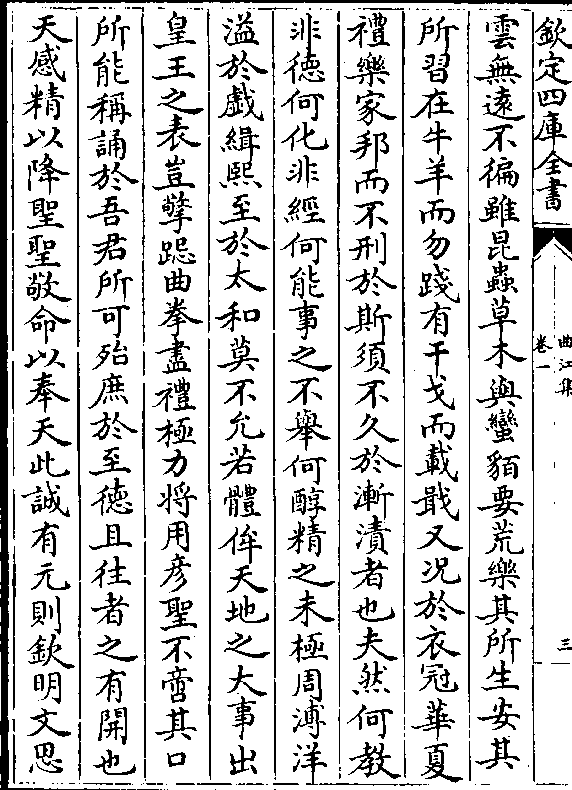 欽定四庫全書
曲江集
卷一
三
雲無遠不徧雖昆蟲草木與蠻貊要荒樂其所生安其
所習在牛羊而勿踐有干戈而載戢又况於衣冠華夏
禮樂家邦而不刑於斯須不久於漸漬者也夫然何教
非徳何化非經何能事之不舉何醇精之未極周溥洋
溢於戲緝熙至於太和莫不允若體侔天地之大事出
皇王之表豈擎跽曲拳盡禮極力將用彦聖不啻其口
所能稱誦於吾君所可殆庶於至徳且往者之有開也
天感精以降聖聖敬命以奉天此誠有元則欽明文思